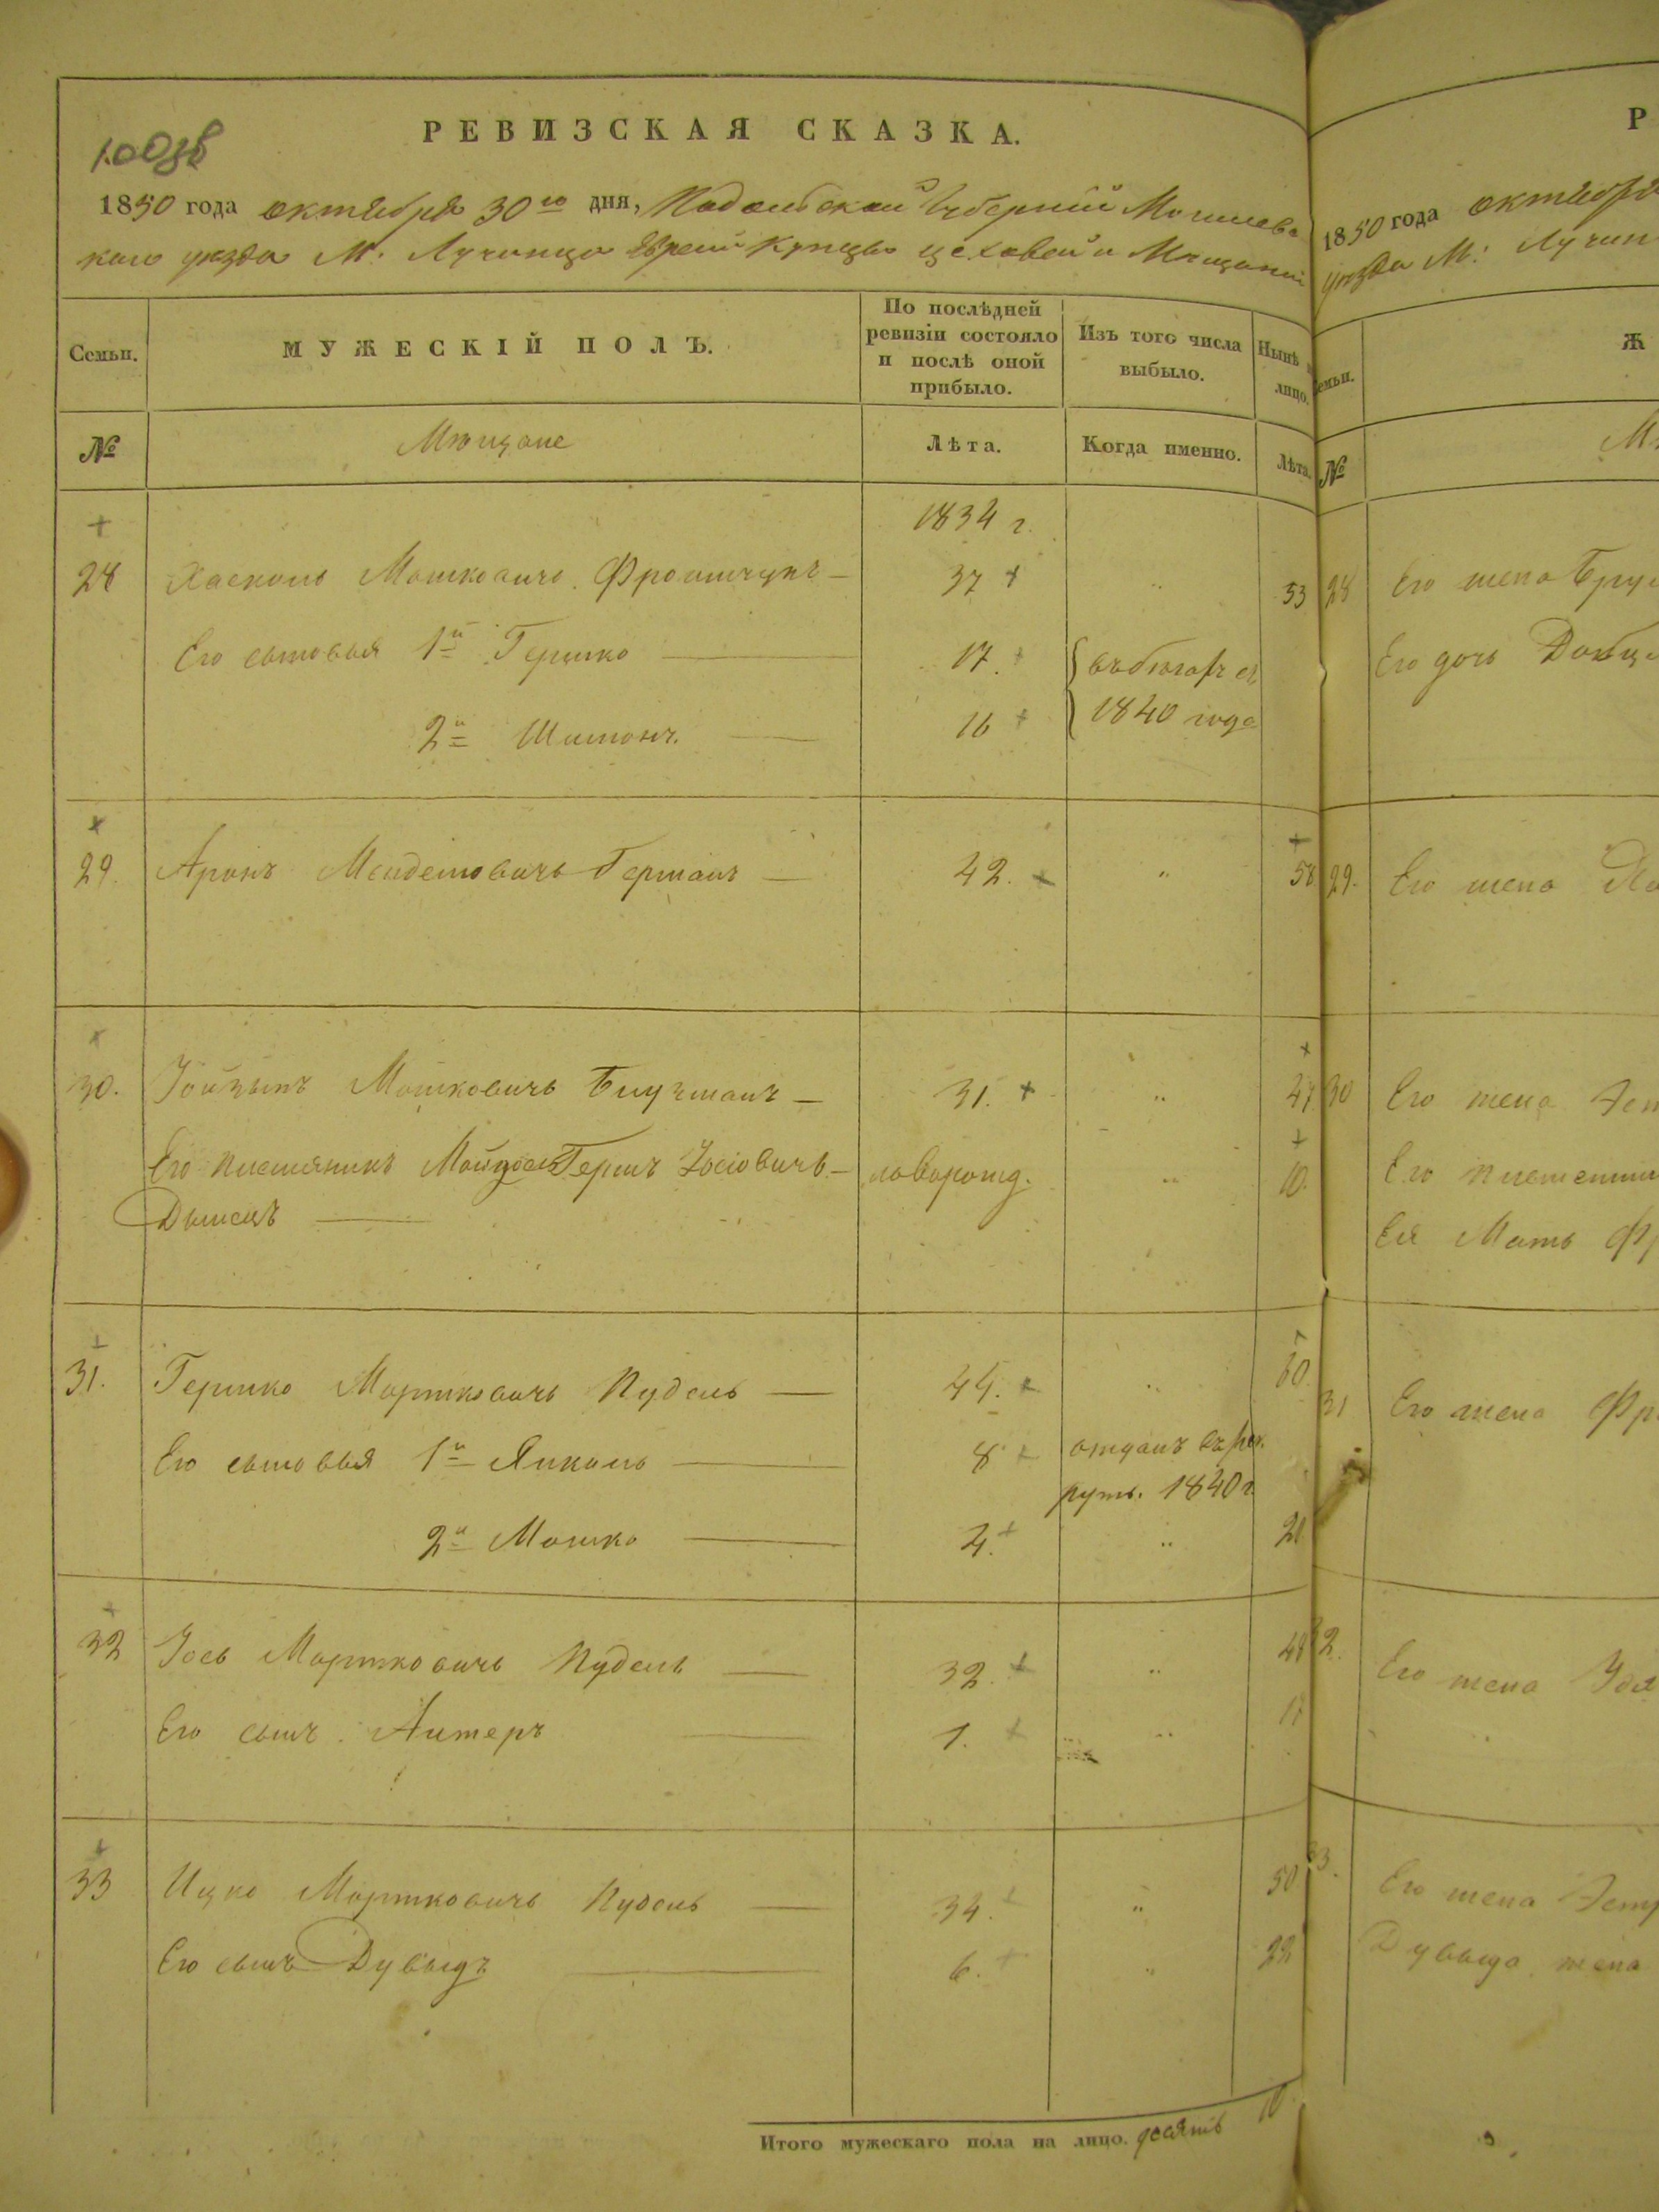 РЕВИЗСКАЯ СКАЗКА.
1850 года октября 30го дня, Подольской Губерній Могилевс
каго уезда М. Лучинца Еврей Купцы цеховей и Мещаны
Семьи.
МУЖЕСКІЙ ПОЛЪ.
По послѣдней ревизіи состояло и послѣ оной прибыло.
Изъ того числа выбыло.
Нынѣ
лицо.
№
Мещане
Лѣта.
Когда именно.
Лѣта.
1834 г.
28 Хаскель Мошковичъ 37 53
Его сыновья 1й Гершко 17. въ бегахъ съ
2й Шимонъ. 16 1840 года
29. Аронъ Мендемовичъ Германъ 42. 58
30. Мошковичъ 31. 47
Его племяникъ Герш Іосіовичъ новорожд. 10.
31. Гершко Мортковичъ Пудель 44. 60
Его сыновья 1й Янкель 8 отданъ въ рек
руты. 1840 г.
2й Мошко 4. 20
32 Іось Мортковичъ Пудель 32. 48
Его сынъ Алтеръ 1. 17
33 Ицко Мортковичъ Пудель 34. 50
Его сынъ Дувыдъ 6. 22
Итого мужескаго пола на лицо. десять 10.
Р
1850 года октября
уезда М: Лучин
Семьи.
Ж
№
28 Его жена
Его дочь
29. Его жена
30 Его жена
Его племенни
Ея Мать
31 Его жена
32. Его жена
33. Его жена
Дувыда жена